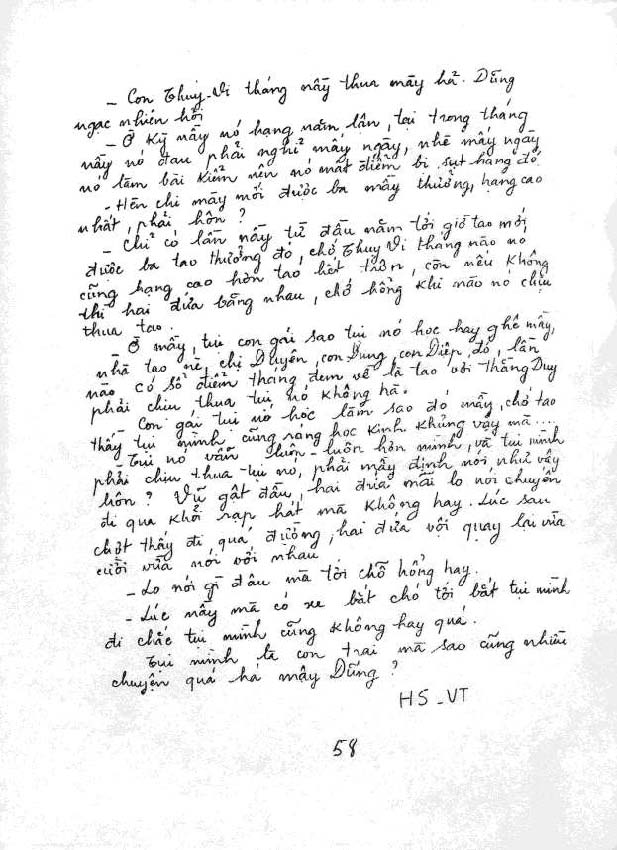 - Con Thùy-Vi tháng nầy thua mầy hả. Dũng
ngạc nhiên hỏi
- Ờ kỳ nầy nó hạng năm lận, tại trong tháng
nầy nó đau phải nghỉ mấy ngày, nhè mấy ngày
nó làm bài kiểm nên nó mất điểm bị sụt hạng đó
- Hèn chi mầy mới được ba mầy thưởng, hạng cao
nhất, phải hôn?
- Chỉ có lần nầy từ đầu năm tới giờ tao mới
được ba tao thưởng đó, chớ Thùy Vi tháng nào nó
cũng hạng cao hơn tao hết trơn, còn nếu không
thì hai đứa bằng nhau, chớ hổng khi nào nó chịu
thua tao.
Ờ mầy, tụi con gái sao tụi nó học hay ghê mầy,
nhà tao nè, chị Duyên, con Dung, con Diệp, đó, lần
nào có sổ điểm tháng đem về là tao với thằng Duy
phải chịu thua tụi nó không hà.
Con gái tụi nó học làm sao đó mầy, chớ tao
thấy tụi mình cũng ráng học kinh khủng vậy mà...
Tụi nó vẫn luôn-luôn hơn mình, và tụi mình
phải chịu thua-tụi nó, phải mầy định nói như vậy
hôn? Vũ gật đầu, hai đứa mãi lo nói chuyện
đi qua khỏi rạp hát mà không hay. Lúc sau
chợt thấy đi quá đường, hai đứa vội quay lại vừa
cười vừa nói với nhau
- Lo nói gì đâu mà tới chỗ hổng hay.
- Lúc nầy mà có xe bắt chó tới bắt tụi mình
đi chắc tụi mình cũng không hay quá.
Tụi mình là con trai mà sao cũng nhiều
chuyện quá há mậy Dũng?
HS-VT
58